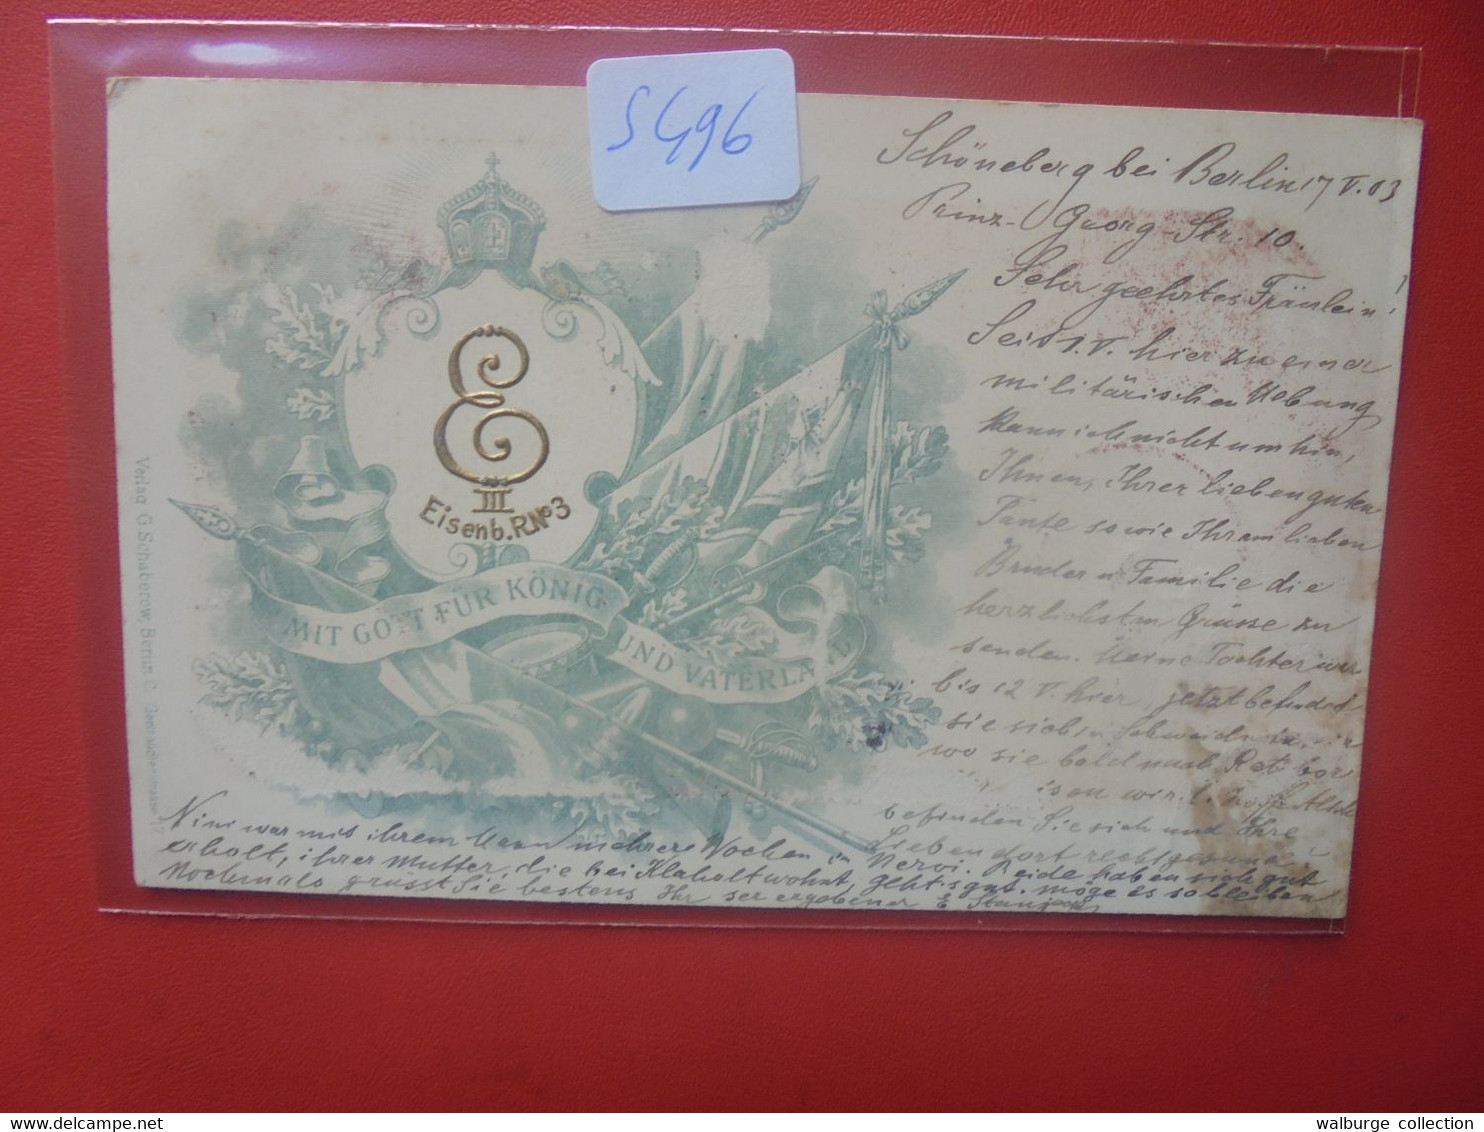 S496
Schöneberg bei Berlin 17 V. 03
Prinz-Georg-Str. 10.
Sehr geehrtes Fräulein!
Seit 1. V. hier zu einer
militärischen Uebung
kann ich nicht umhin,
Ihnen, Ihrer lieben guten
Tante sowie Ihrem lieben
Bruder u Familie die
herzlichsten Grüsse zu
senden. Meine Tochter war
bis 12 V. hier, jetzt befindet
sie sich in
wo sie bald nach
befinden Sie sich und Ihre
Lieben dort recht gesund?
Nini war mit ihrem Mann mehrere Wochen in Nervi. Beide haben sich gut
erholt, ihrer Mutter, die bei Klaholt wohnt, geht's gut. möge es so bleiben
Nochmals grüsst Sie bestens Ihr ser ergebener E
E
III
Eisenb. R. No 3
MIT GOTT FÜR KÖNIG
UND VATERLAND
Verlag G. Schaberow, Berlin C.
walburge collection